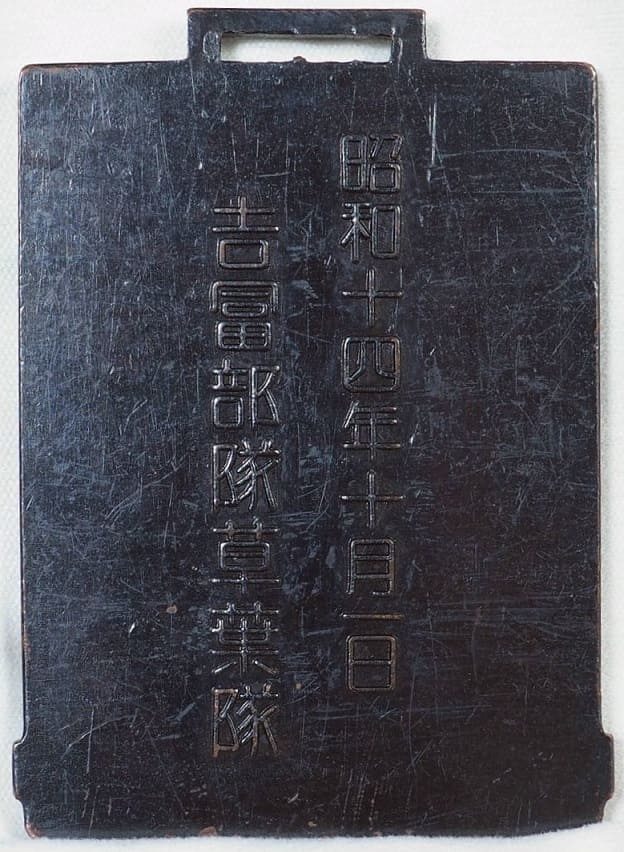 昭和十四年十月一日
吉冨部隊草葉隊